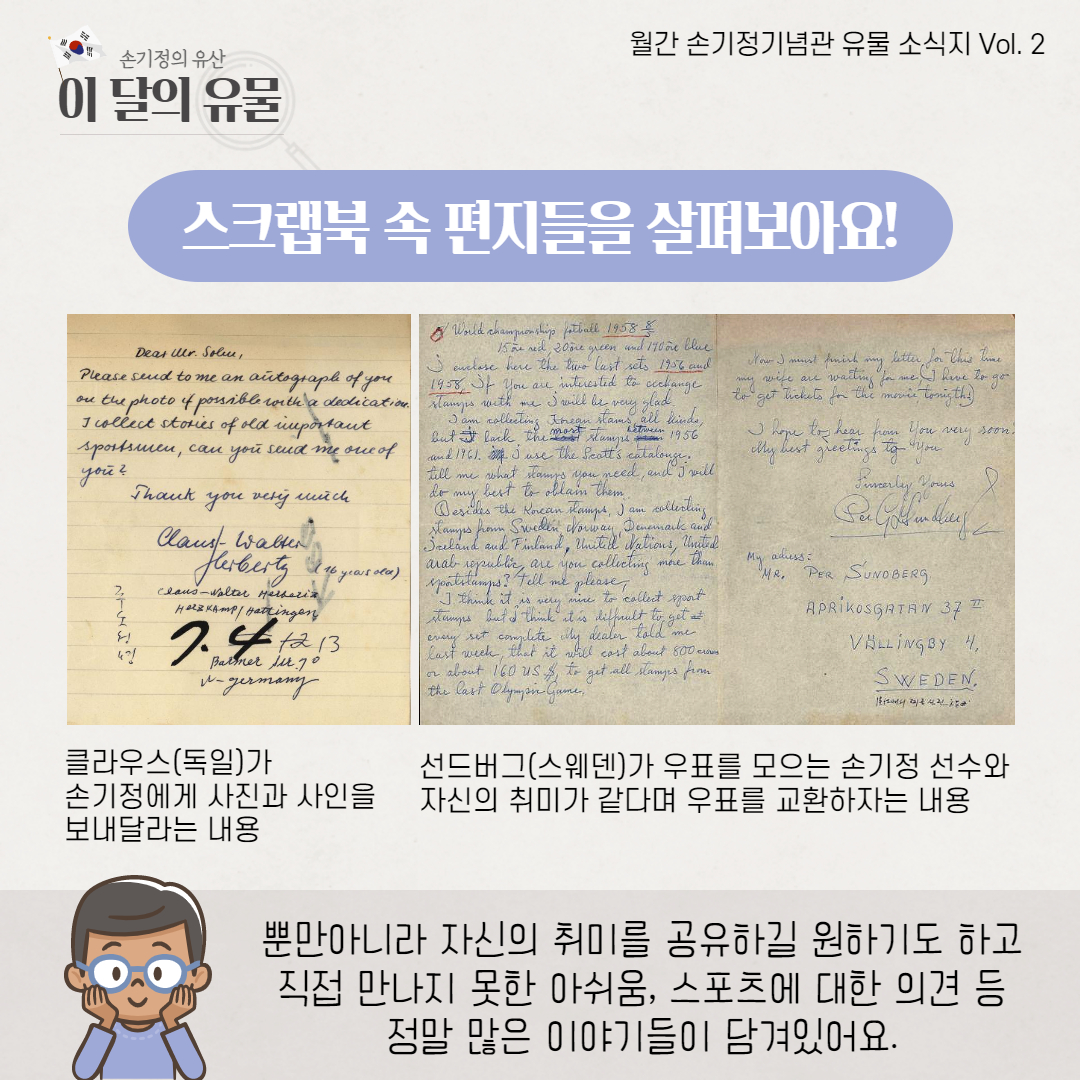 손기정의 유산
이 달의 유물
월간 손기정기념관 유물 소식지 Vol. 2
스크랩북 속 편지들을 살펴보아요!
Dear Mr. Sohn,
Please send to me an autograph of you
on the photo if possible with a dedication.
I collect stories of old important
sportsmen, can you send me one of
you?
Thank you very much
Claus-Walter
Herbertz (16 years old)
Claus-Walter Herbertz
Herzkamp/Hattingen
7.4 +213
Barmer Str. 70
W-germany
World championship fotball 1958
15 öre red, 20 öre green and 140 öre blue
I enclose here the two last sets 1956 and
1958. If You are interested to exchange
stamps with me I will be very glad
I am collecting Korean stams, all kinds,
but I lack the most stamps between 1956
and 1961. I use the Scott's catalouge.
tell me what stamps you need, and I will
do my best to obtain them.
Besides the Korean stamps, I am collecting
stamps from Sweden, Norway, Denemark and
Iceland and Finland, United Nations, United
arab republic, are you collecting more than
sportstamps? Tell me please,
I think it is very nice to collect sport
stamps but I think it is difficult to get
every set complete My dealer told me
last week, that it will cost about 800 crowns
or about 160 US $, to get all stamps from
the last Olympic Game.
Now I must finish my letter for this time
my wife are waiting for me (I have to go
to get tickets for the movie tonigths)
I hope to hear from You very soon.
My best greetings to You
Sincerly Yours
Per G Sundberg
My adress:
MR. PER SUNDBERG
APRIKOSGATAN 37 II
VÄLLINGBY 4,
SWEDEN.
클라우스(독일)가
손기정에게 사진과 사인을
보내달라는 내용
선드버그(스웨덴)가 우표를 모으는 손기정 선수와
자신의 취미가 같다며 우표를 교환하자는 내용
뿐만아니라 자신의 취미를 공유하길 원하기도 하고
직접 만나지 못한 아쉬움, 스포츠에 대한 의견 등
정말 많은 이야기들이 담겨있어요.